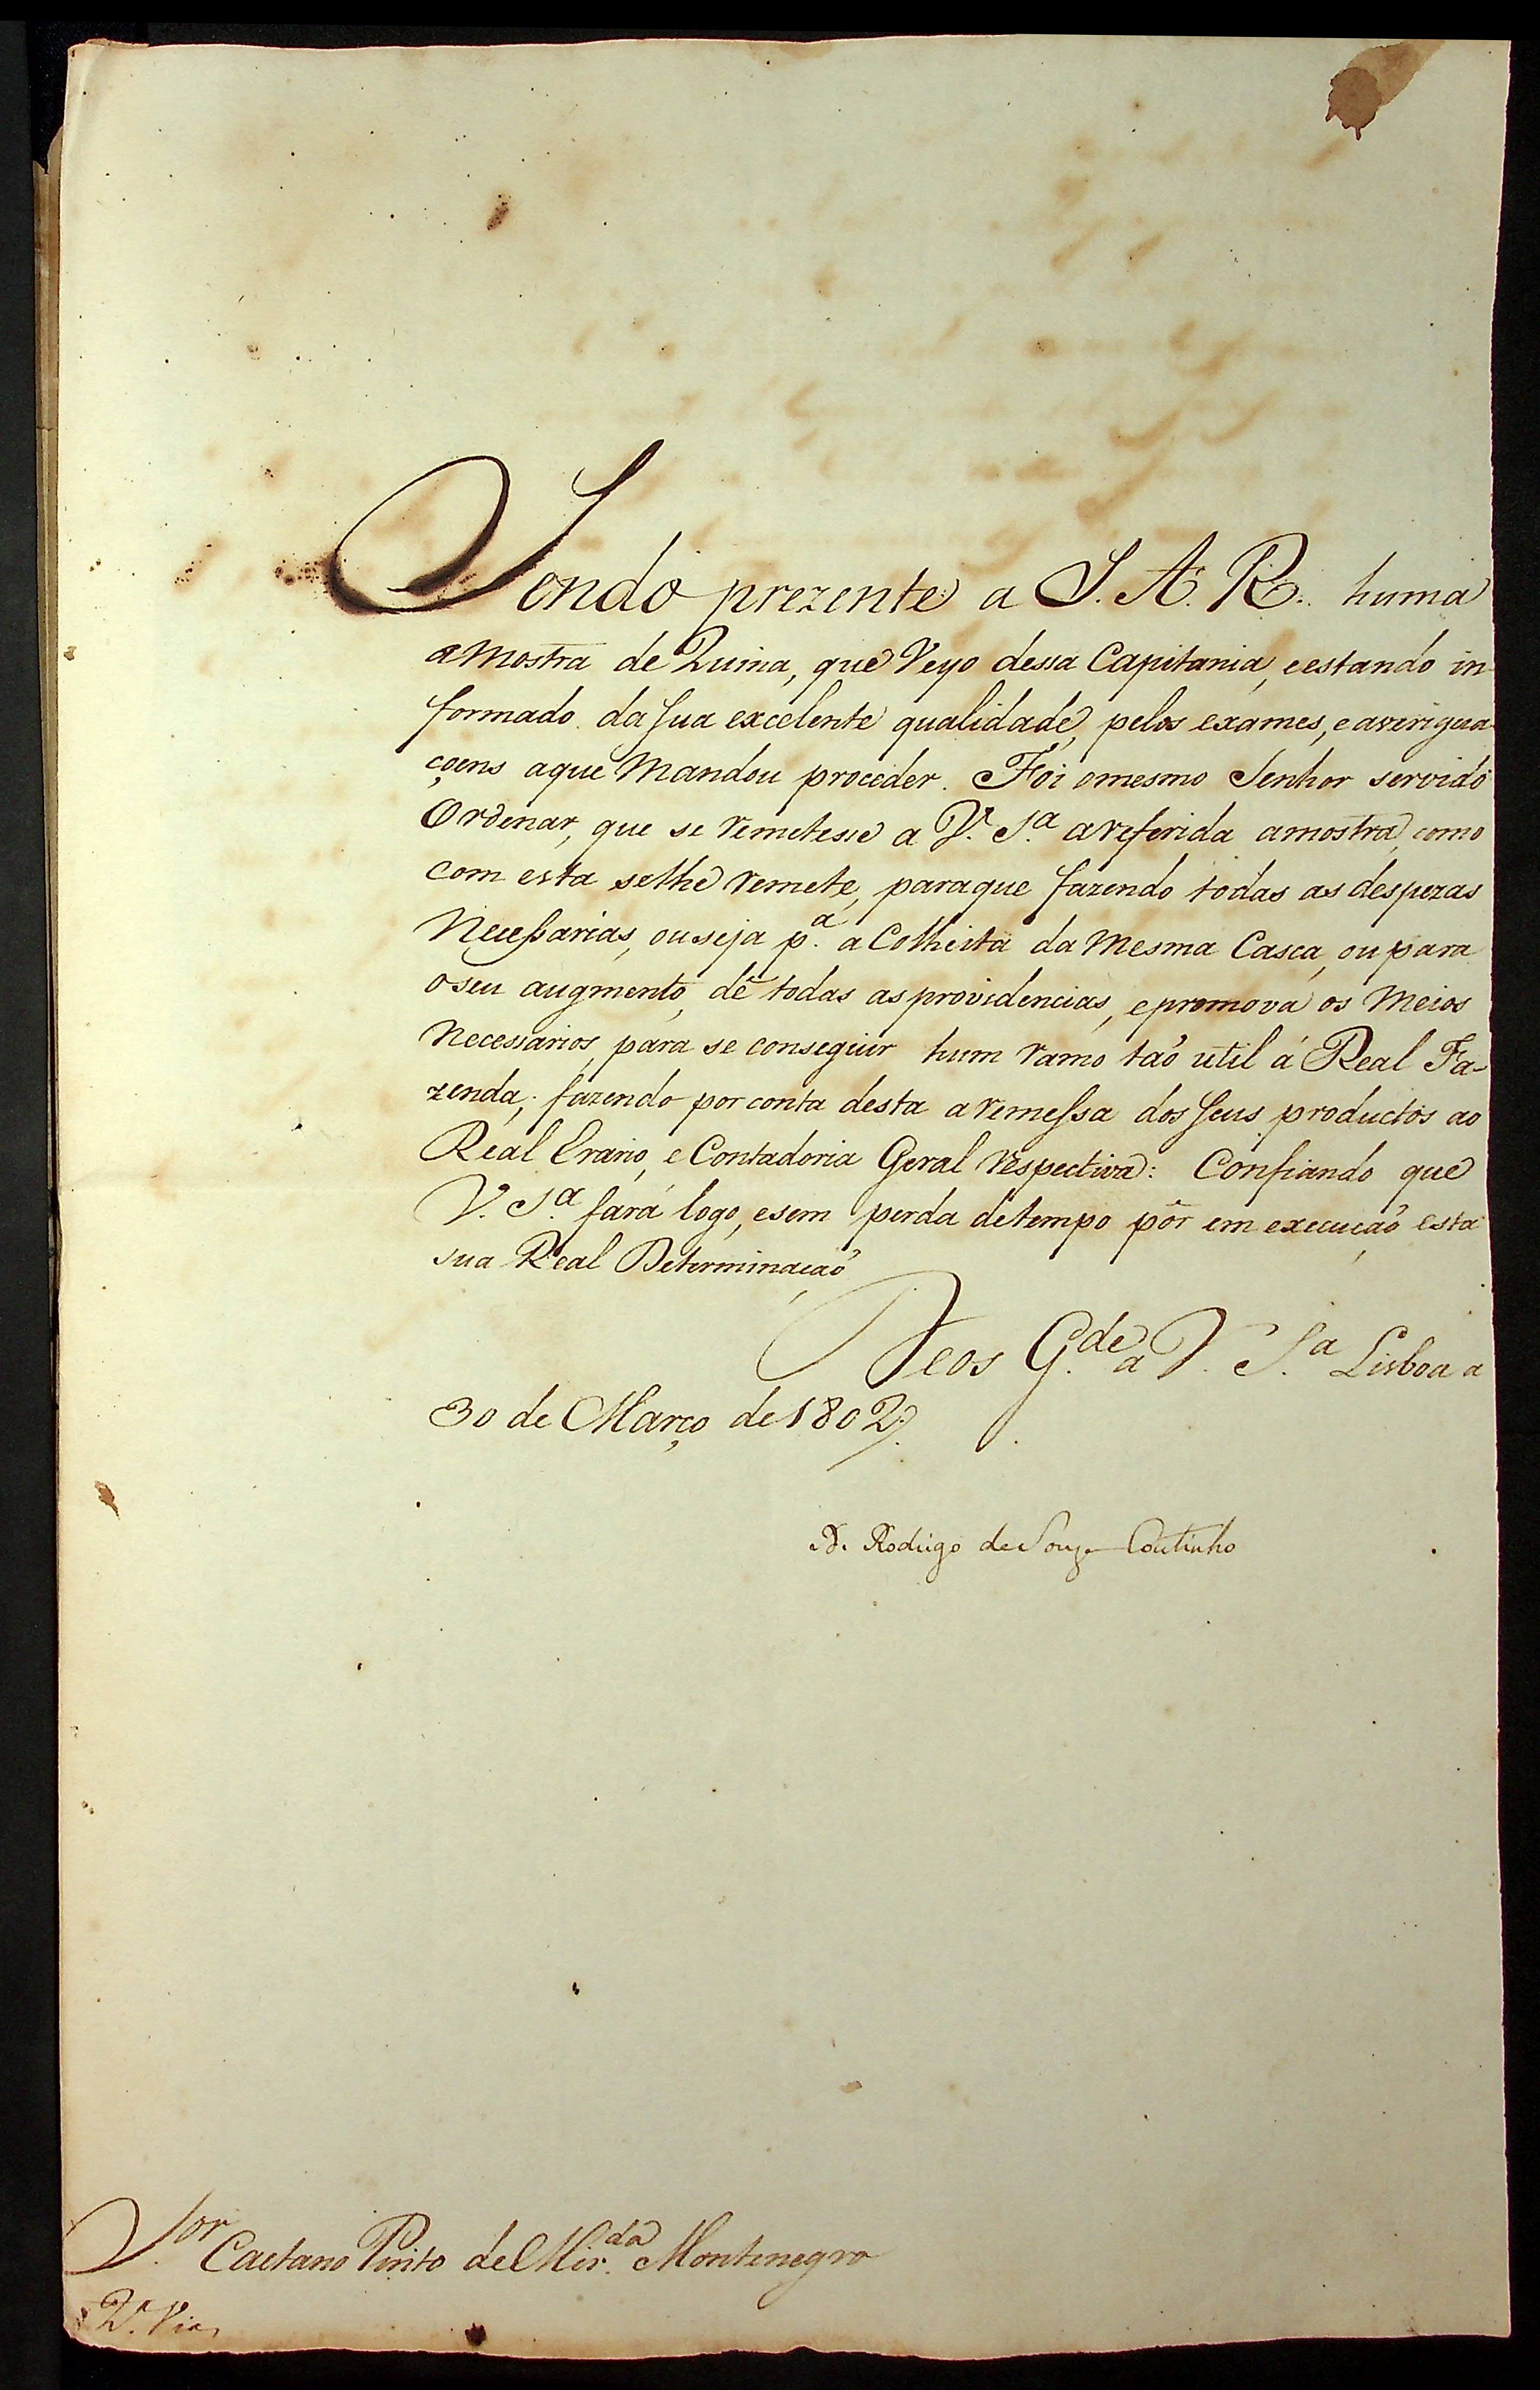 Sendo prezente a S. A. R. huma
amostra de Quina, que Veyo dessa Capitania, eestando in-
formado da sua excelente qualidade, pelos exames, eaverigua-
çoens aque Mandou proceder. Foi omesmo Senhor servido
Ordenar, que se remetesse a V. S.ª areferida amostra, como
com esta selhe remete, paraque fazendo todas as despezas
Necessarias, ouseja p.ª a Colheita da Mesma Casca, ou para
oseu augmento, dê todas asprovidencias, epromova os Meios
Necessarios, para se conseguir hum ramo taõ util á Real Fa-
zenda; fazendo por conta desta aremessa dos seus productos ao
Real Erario, e Contadoria Geral respectiva: Confiando que
V. S.ª fará logo, esem perda detempo pôr em execuçaõ esta
sua Real Determinaçaõ
Deos G.de a V. S.ª Lisboa a
30 de Março de 1802.
D. Rodrigo de Souza Coutinho
S.or Caetano Pinto de Mir.da Montenegro
2.ª Via